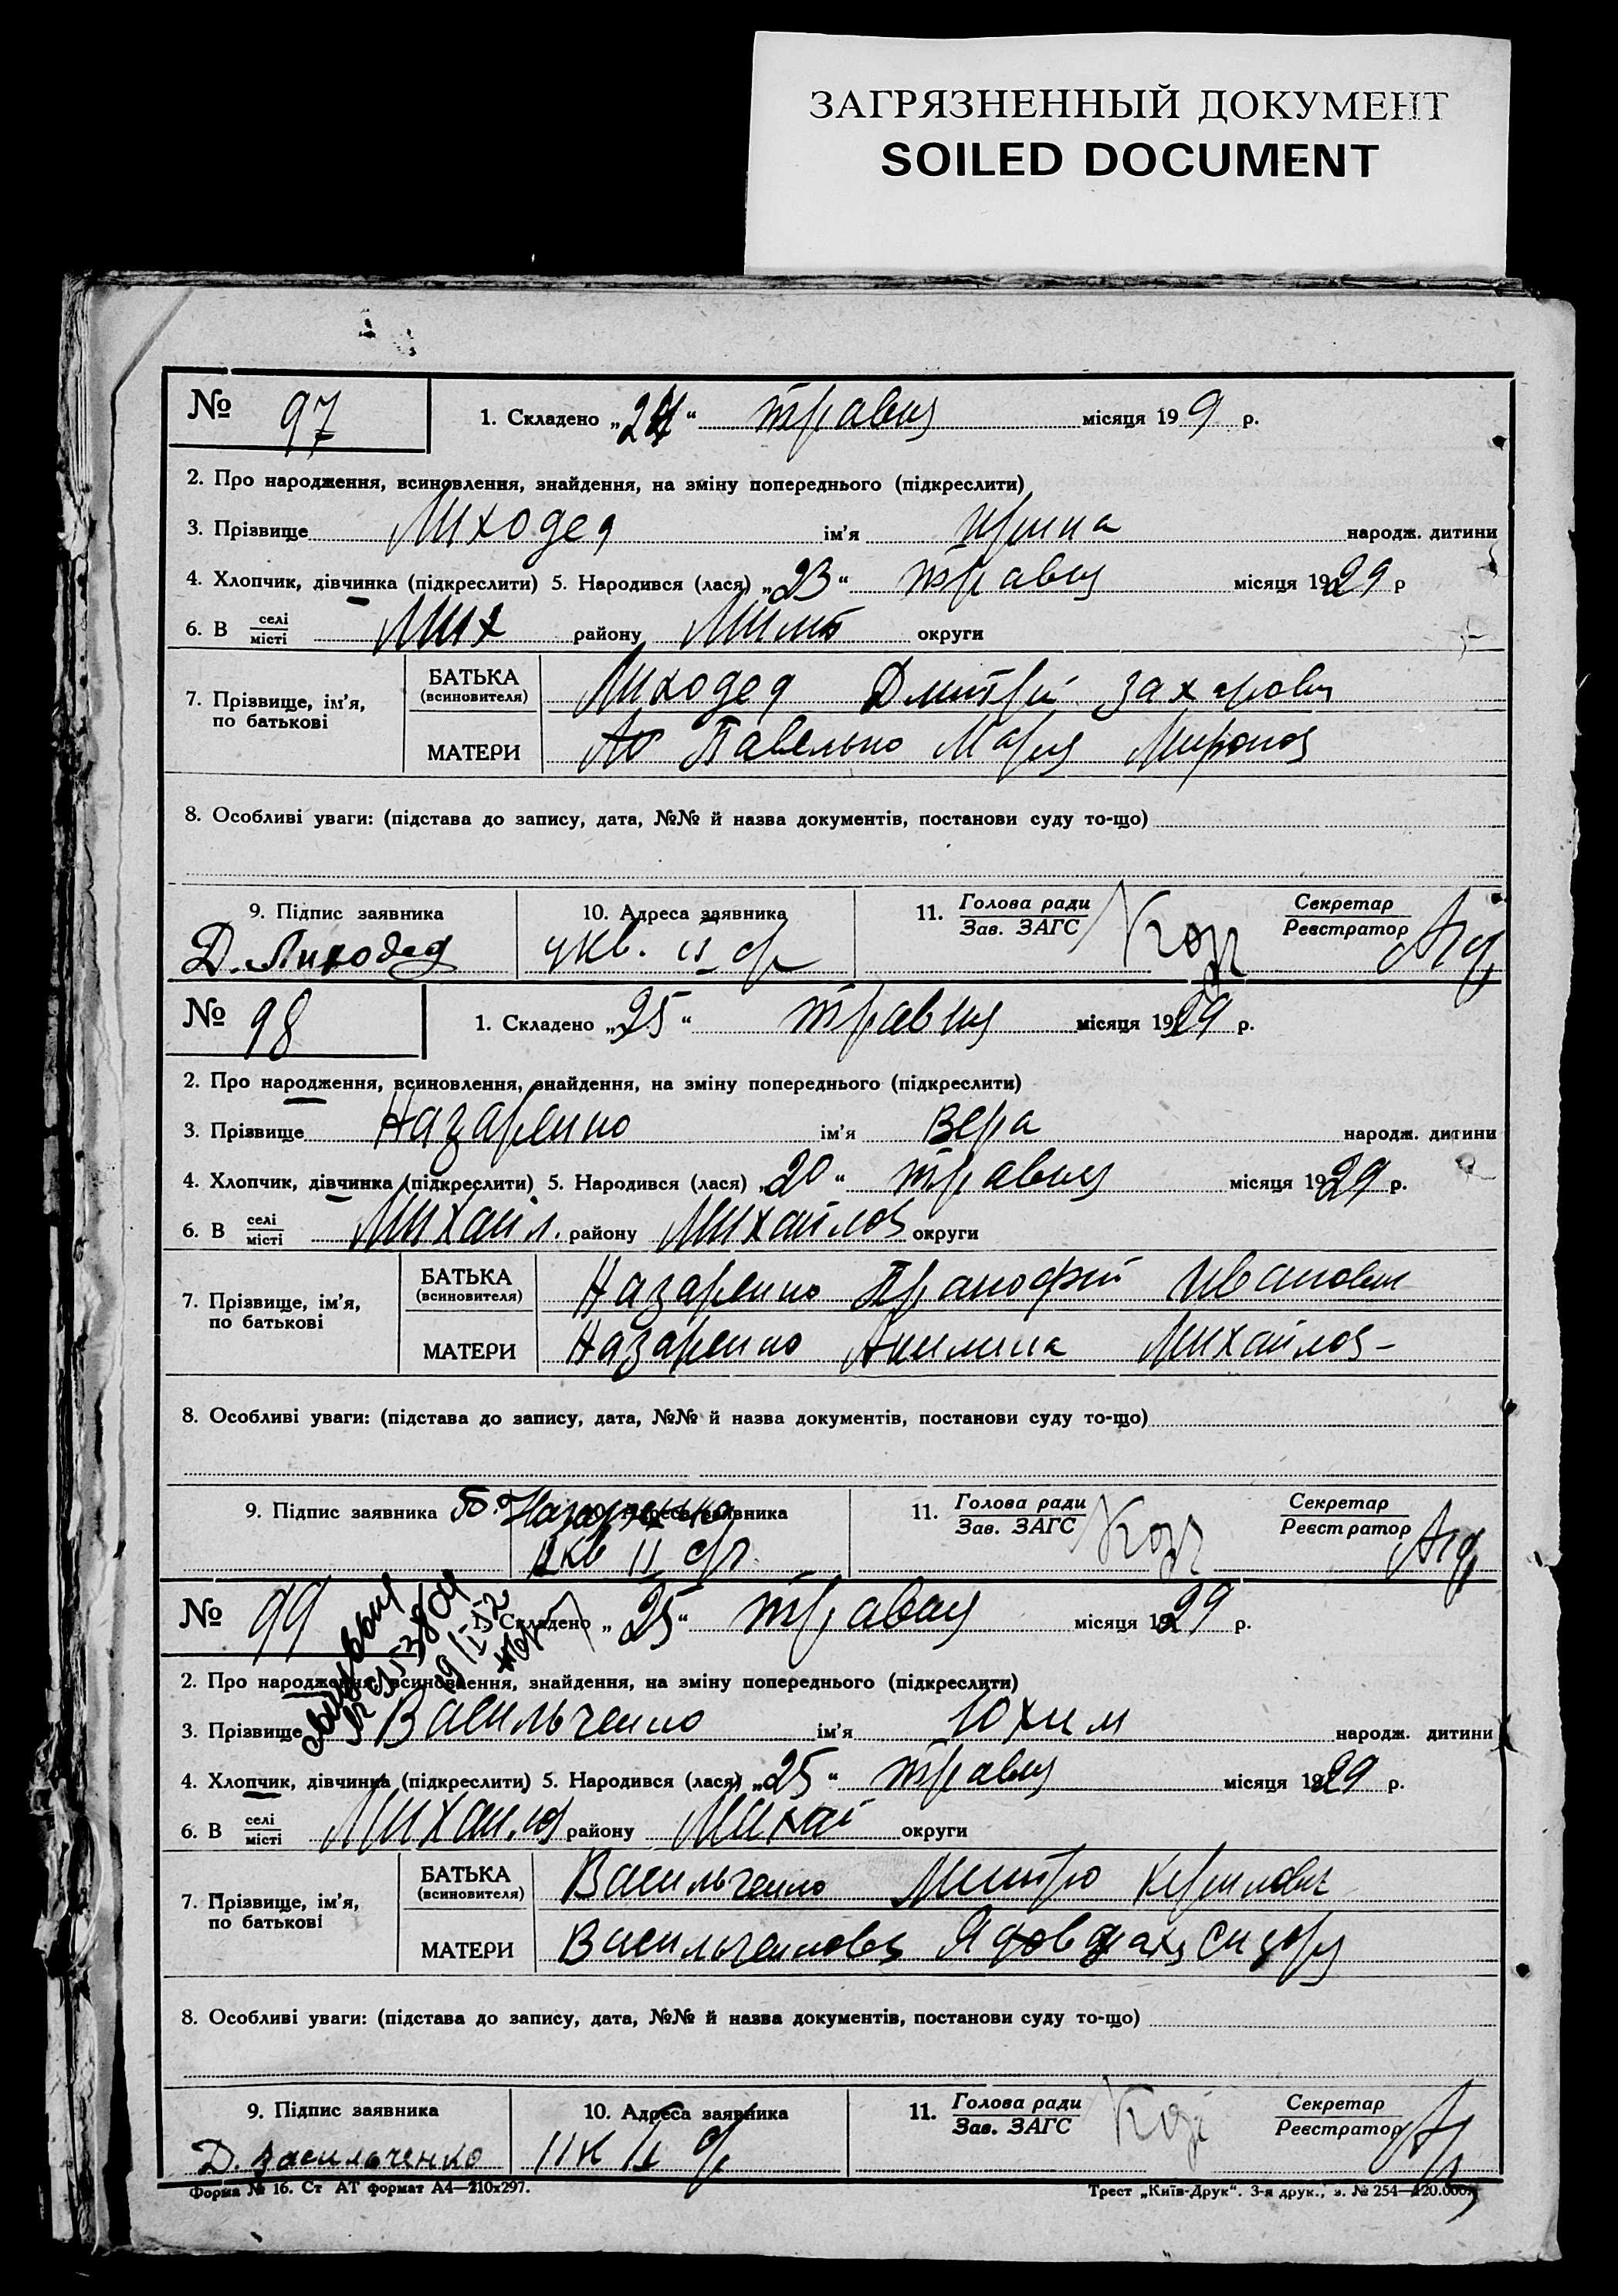 ЗАГРЯЗНЕННЫЙ ДОКУМЕНТ
SOILED DOCUMENT
№ 97 1. Складено „24“ травня місяця 199 р.
2. Про народження, всиновлення, знайдення, на зміну попереднього (підкреслити)
3. Прізвище Лиходед ім'я Ирина народж. дитини
4. Хлопчик, дівчинка (підкреслити) 5. Народився (лася) „23“ травня місяця 1929 р
6. В селі місті Мих району округи
7. Прізвище, ім'я, по батькові
БАТЬКА (всиновителя) Лиходед Дмитрій Захарович
МАТЕРИ Павелько Мария Миронов
8. Особливі уваги: (підстава до запису, дата, №№ й назва документів, постанови суду то-що)
9. Підпис заявника 10. Адреса заявника 11. Голова ради Зав. ЗАГС Секретар Реєстратор
Д. Лиходед 4 кв.
№ 98 1. Складено „25“ травня місяця 1929 р.
2. Про народження, всиновлення, знайдення, на зміну попереднього (підкреслити)
3. Прізвище Назаренко ім'я Вера народж. дитини
4. Хлопчик, дівчинка (підкреслити) 5. Народився (лася) „20“ травня місяця 1929 р.
6. В селі місті Михайл. району Михайлов округи
7. Прізвище, ім'я, по батькові
БАТЬКА (всиновителя) Назаренко Иванович
МАТЕРИ Назаренко Акилина Михайлов-
8. Особливі уваги: (підстава до запису, дата, №№ й назва документів, постанови суду то-що)
9. Підпис заявника Назаренко заявника 11. Голова ради Зав. ЗАГС Секретар Реєстратор
кв II
№ 99 1. Складено „25“ травня місяця 1929 р.
2. Про народження, всиновлення, знайдення, на зміну попереднього (підкреслити)
3. Прізвище Васильченко ім'я Юхим народж. дитини
4. Хлопчик, дівчинка (підкреслити) 5. Народився (лася) „25“ травня місяця 1929 р.
6. В селі місті району Михай округи
7. Прізвище, ім'я, по батькові
БАТЬКА (всиновителя) Васильченко Митро Кирилович
МАТЕРИ Васильченкова Сидор
8. Особливі уваги: (підстава до запису, дата, №№ й назва документів, постанови суду то-що)
9. Підпис заявника 10. Адреса заявника 11. Голова ради Зав. ЗАГС Секретар Реєстратор
Д. Васильченко 11 к
Форма № 16. Ст АТ формат А4—210х297. Трест „Київ-Друк“. 3-я друк., з. № 254—120.000.